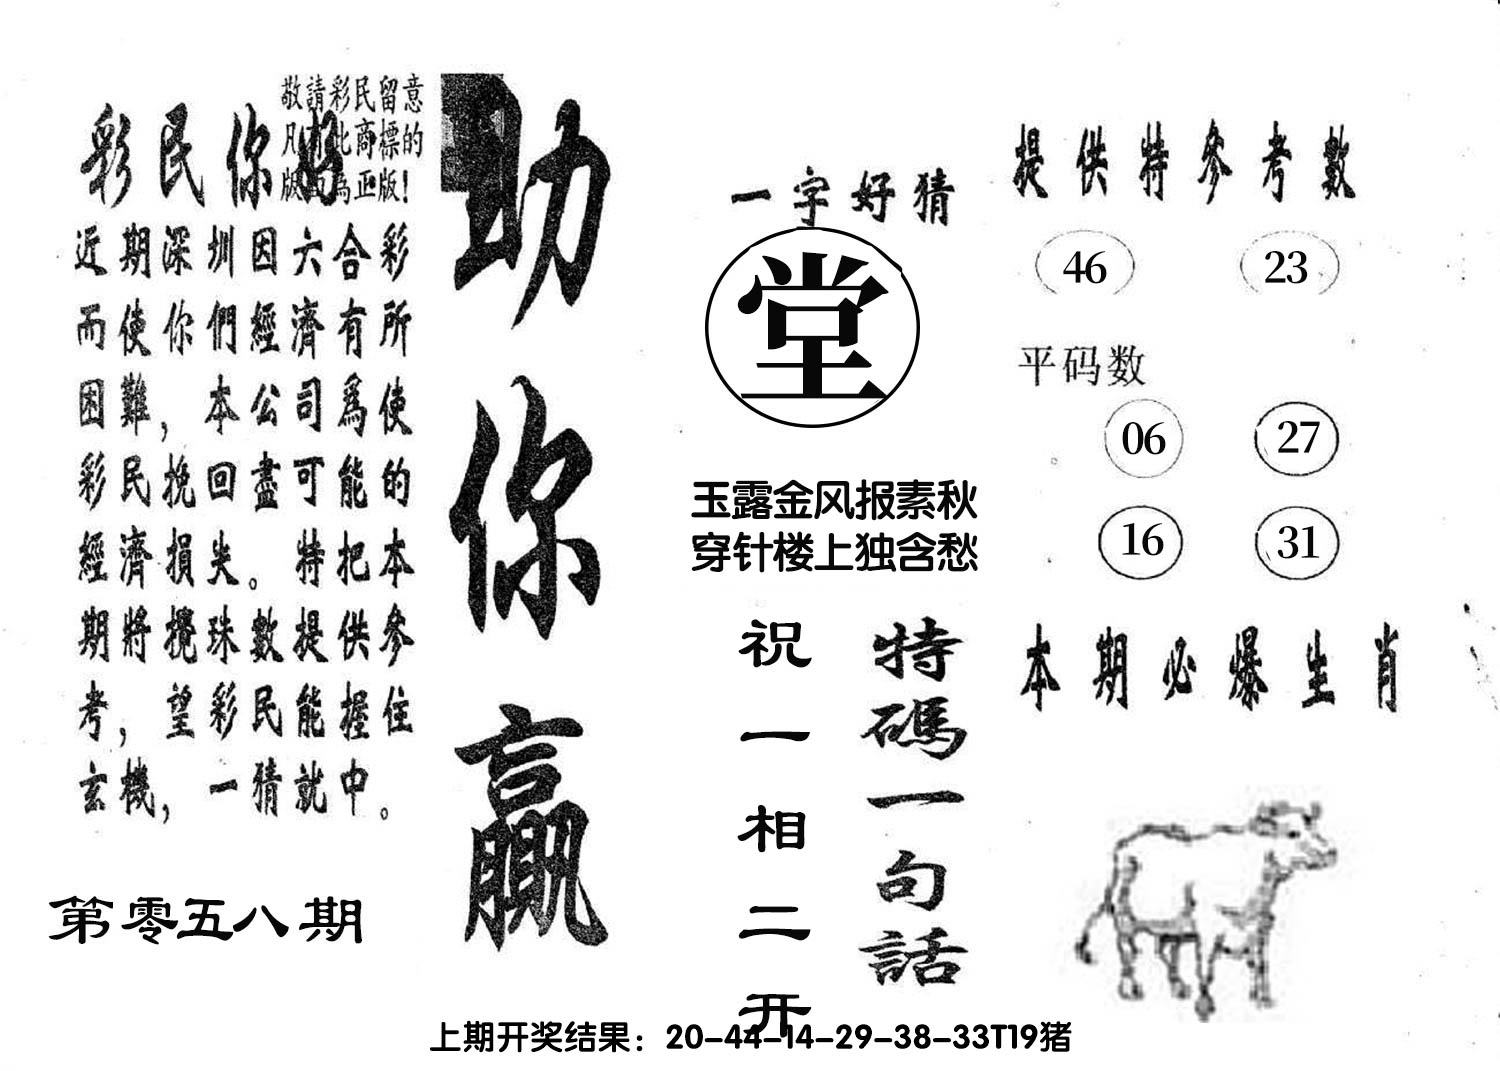 敬請彩民留意
凡有此商標的
版面為正版！
彩民你好
近期深圳因六合彩
而使你們經濟有所
困難，本公司爲使
彩民挽回盡可能的
經濟損失。特把本
期將攪珠數提供參
考，望彩民能握住
玄機，一猜就中。
第零五八期
助你贏
一字好猜
堂
玉露金风报素秋
穿针楼上独含愁
特碼一句話
祝一相二开
提供特參考數
46 23
平码数
06 27
16 31
本期必爆生肖
上期开奖结果：20-44-14-29-38-33T19猪